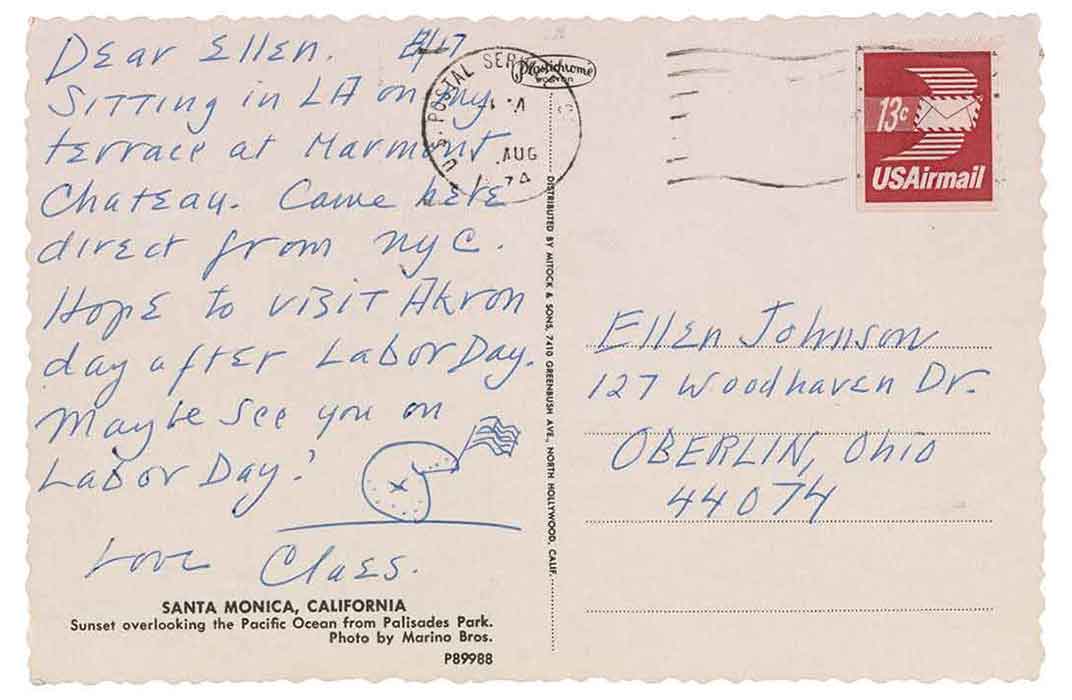 Dear Ellen. 8/17
Sitting in LA on my
terrace at Marmont
Chateau. Came here
direct from NYC.
Hope to visit Akron
day after Labor Day.
Maybe see you on
Labor Day?
Love Claes.
SANTA MONICA, CALIFORNIA
Sunset overlooking the Pacific Ocean from Palisades Park.
Photo by Marino Bros.
P89988
Plastichrome
BOSTON
DISTRIBUTED BY MITOCK & SONS, 7410 GREENBUSH AVE., NORTH HOLLYWOOD, CALIF.
U.S. POSTAL SERV
AUG
74
13c
USAirmail
Ellen Johnson
127 Woodhaven Dr.
OBERLIN, Ohio
44074